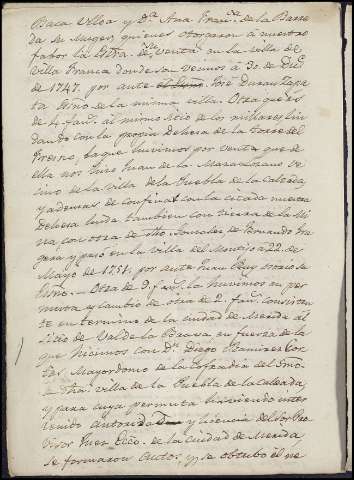 Baca Ulloa y D.ª Ana Fran.ca de la Barre
da su Muger, quienes otorgaron a nuestro
fabor la Escra. de Venta en la villa de
Villa Franca donde son vecinos a 30. de Dic.e
de 1747. por ante Josè Duran Zapa
ta Esno de la misma villa. Otra que es
de 4. fan.s al mismo sitio de los millares, lin
dando con la propia dehesa de la Torre del
Fresno, la que huvimos por venta que de
ella nos hizo Juan de la Mata Lozano ve
cino de la villa de la Puebla de la Calzada,
y ademas de confinar con la citada nuestra
dehesa linda tambien con tierra de la Mi
na con otra de Dho. Gonzalez de Fernando Fra
gera y pasò en la villa del Montijo a 22. de
Mayo de 1751. por ante Juan Ruiz
Esno. Otra de 9. fan.s la huvimos en per
muta y cambio de otra de 2. fan.s consisten
te en termino de la Ciudad de Merida al
sitio de Val de la en fuerza de la
que hicimos con D.n Diego Ramirez Cor
tes Mayordomo de la Cofradia del Smo
de dha. villa de la Puebla de la Calzada,
y para cuya permuta haviendo inter
venido autoridad y licencia del Sor Pro
visor Juez Ecco. de la Ciudad de Merida,
se formaron Autos, y se obtubo el ne